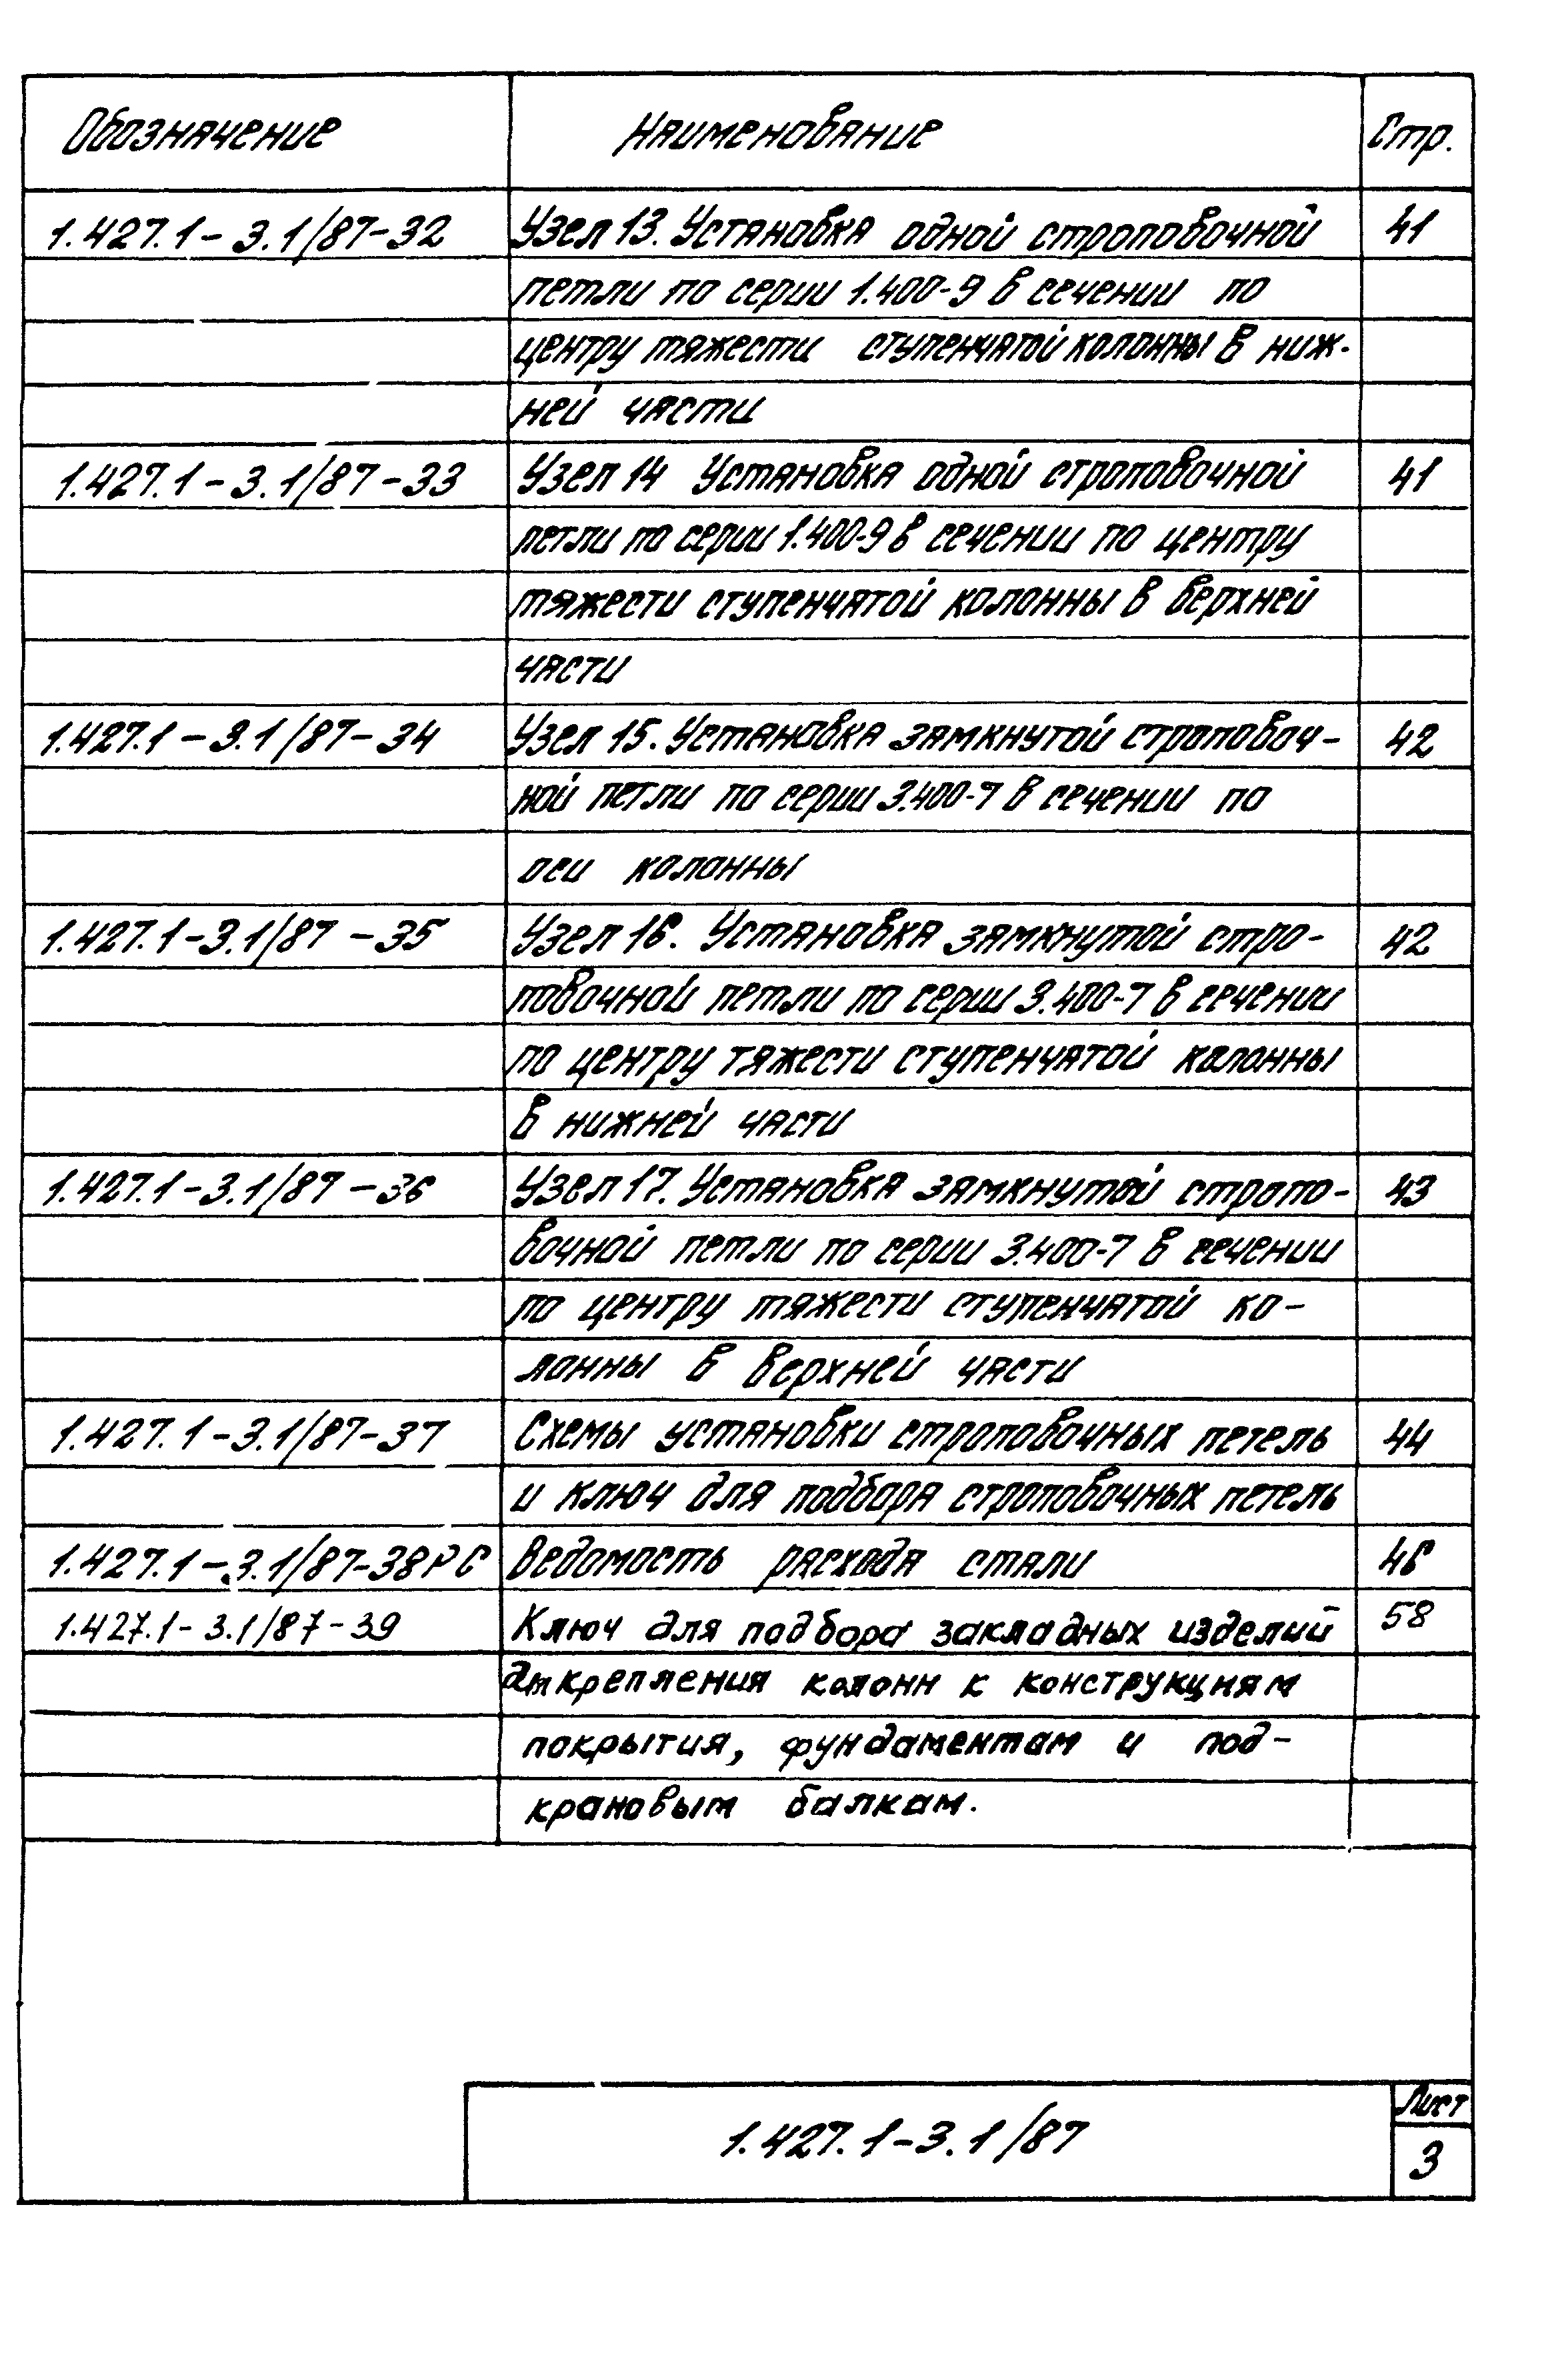 Обозначение Наименование Стр.
1.427.1-3.1/87-32 Узел 13. Установка одной строповочной 41
петли по серии 1.400-9 в сечении по
центру тяжести ступенчатой колонны в ниж-
ней части
1.427.1-3.1/87-33 Узел 14 Установка одной строповочной 41
петли по серии 1.400-9 в сечении по центру
тяжести ступенчатой колонны в верхней
части
1.427.1-3.1/87-34 Узел 15. Установка замкнутой строповоч- 42
ной петли по серии 3.400-7 в сечении по
оси колонны
1.427.1-3.1/87-35 Узел 16. Установка замкнутой стро- 42
повочной петли по серии 3.400-7 в сечении
по центру тяжести ступенчатой колонны
в нижней части
1.427.1-3.1/87-36 Узел 17. Установка замкнутой стропо- 43
вочной петли по серии 3.400-7 в сечении
по центру тяжести ступенчатой ко-
лонны в верхней части
1.427.1-3.1/87-37 Схемы установки строповочных петель 44
и ключ для подбора строповочных петель
1.427.1-3.1/87-38РС Ведомость расхода стали 46
1.427.1-3.1/87-39 Ключ для подбора закладных изделий 58
крепления колонн к конструкциям
покрытия, фундаментам и под-
крановым балкам.
1.427.1-3.1/87
Лист
3